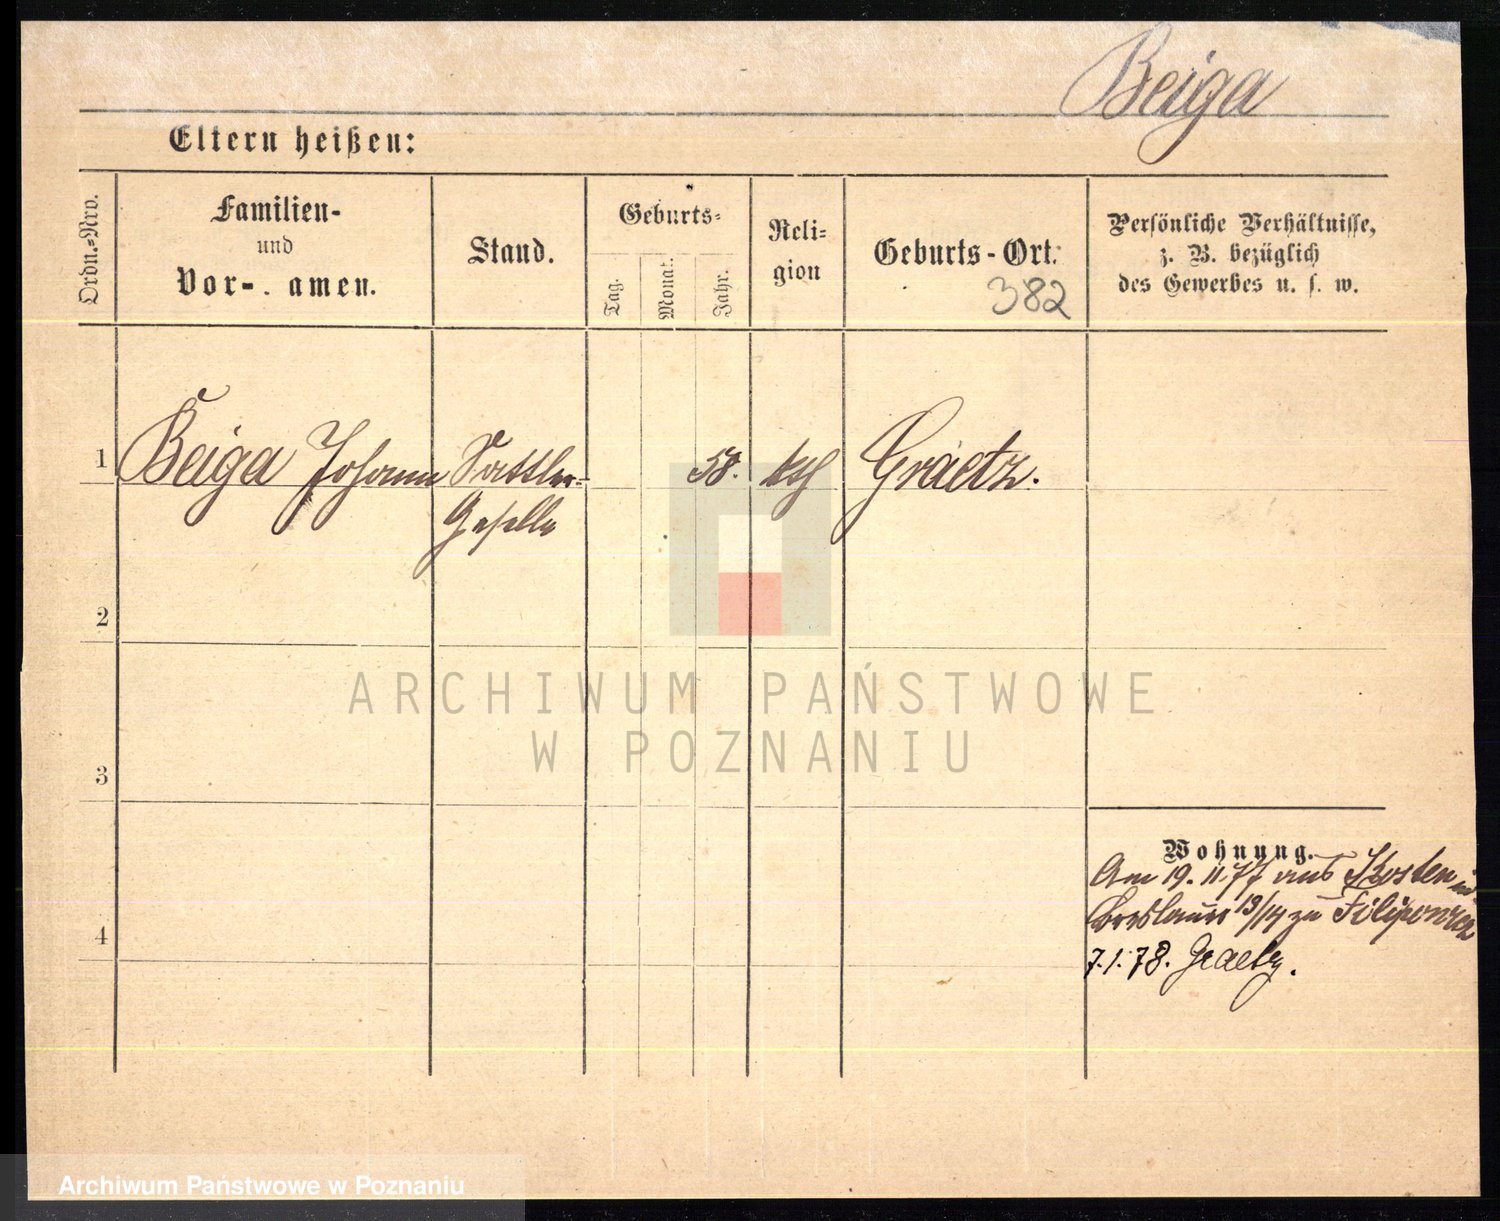 Beiga
Eltern heißen:
Ordn.=Nro.
Familien-
und
Vor-. amen.
Stand.
Geburts=
Tag.
Monat.
Jahr.
Reli=
gion
Geburts-Ort.
382
Persönliche Verhältnisse,
z. B. bezüglich
des Gewerbes u. s. w.
1 Beiga Johann Sattler= 58. kth Graetz.
Geselle
2
ARCHIWUM PAŃSTWOWE
W POZNANIU
3
Wohnung.
Am 19. 11. 77 aus Kosten in
Breslauer 13/14 zu
4
7. 1. 78. Graetz.
Archiwum Państwowe w Poznaniu